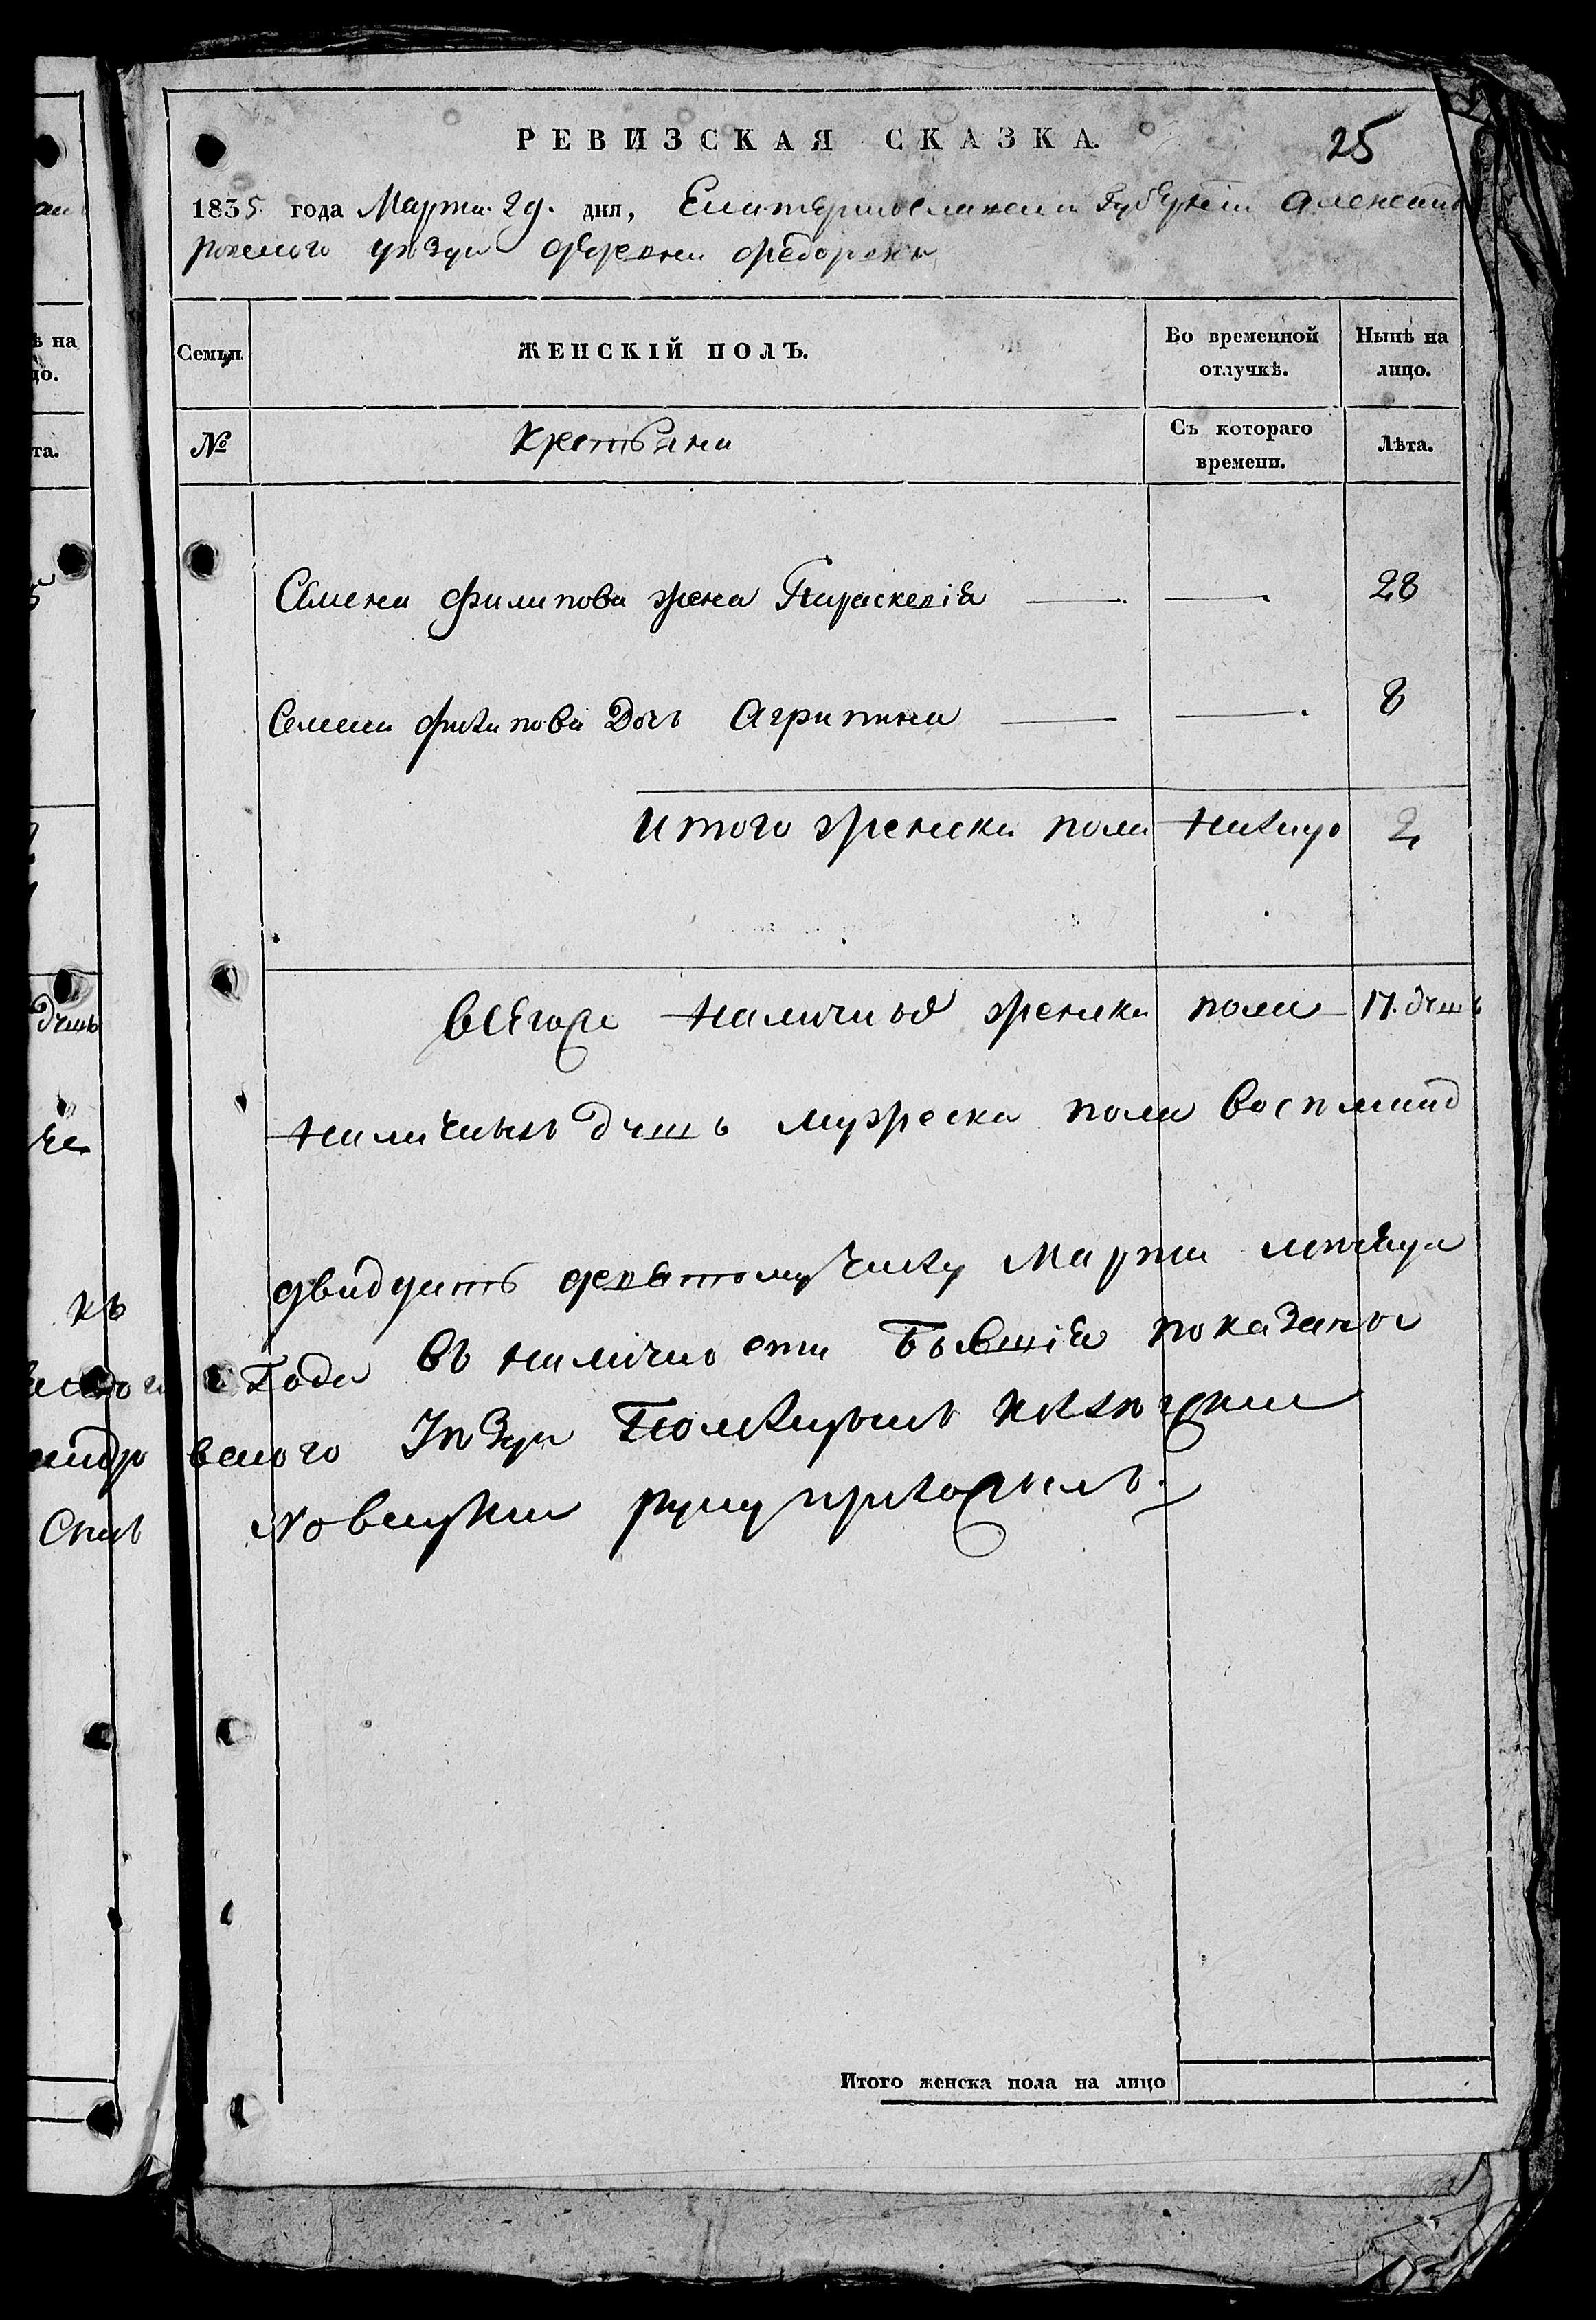 РЕВИЗСКАЯ СКАЗКА.
25
1835 года Марта 29. дня, Екатеринославской Губерніи Александ
ровского уѣзда деревни Федоровки
Семьи.
ЖЕНСКІЙ ПОЛЪ.
Во временной отлучкѣ.
Нынѣ на лицо.
№
Крестьяни
Съ котораго времени.
Лѣта.
Семена Филипова жена Параскевія 28
Семена Филипова Дочь Агрипина 8
Итого женска пола налицо 2
Всего наличныя женска пола 17. душъ
наличныхъ душъ мужеска пола
двадцать девятому числу Марта месяца
Года въ наличности бывшія показаны
вского Уѣзда
руку приложилъ.
Итого женска пола на лицо
ѣ на
цо.
та.
душъ
къ